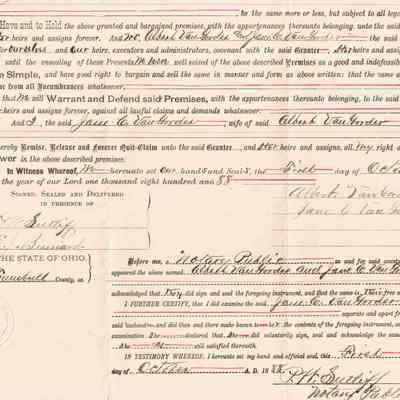 be the same more or less, but subject to all legal
Have and to Hold the above granted and bargained premises, with the appurtenances thereunto belonging, unto the said
her heirs and assigns forever. And we, Albert Van Gorder & Jane C. Van Gorder the said
for ourselves and our heirs, executors and administrators, covenant with the said Grantee, her heirs and assigns
until the ensealing of these Presents we were well seized of the above described Premises as a good and indefeasible
e Simple, and have good right to bargain and sell the same in manner and form as above written: that the same
ce from all Incumbrances whatsoever.
that We will Warrant and Defend said Premises, with the appurtenances thereunto belonging, to the said
heirs and assigns forever, against all lawful claims and demands whatsoever.
And I, the said Jane C. Van Gorder, wife of said Albert Van Gorder
hereby Remise, Release and Forever Quit-Claim unto the said Grantee, and her heirs and assigns, all my right
wer in the above described premises.
In Witness Whereof, We hereunto set our hands and Seals, the First day of Octo
the year of our Lord one thousand eight hundred and 88
Signed, Sealed and Delivered
in presence of
Albert Van Gor
Sutliff
Jane C Van
THE STATE OF OHIO,
Trumbull County, ss
Before me, a Notary Public in and for said county
appeared the above named, Albert Van Gorder and Jane C. Van G
acknowledged that They did sign and seal the foregoing instrument, and that the same is Their free
I FURTHER CERTIFY, that I did examine the said Jane C. Van Gorder
separate and apart f
said husband and did then and there make known to her the contents of the foregoing instrument, and
examination she declared that she did voluntarily sign, seal and acknowledge the same,
she is still satisfied therewith.
IN TESTIMONY WHEREOF, I hereunto set my hand and official seal, this First
day of October A. D. 1888
Sutliff
Notary Public